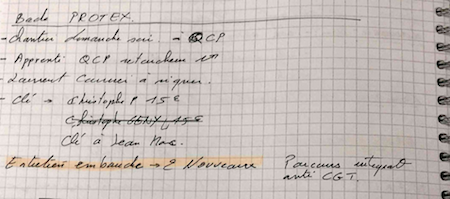 Bade PROTEX.
- Chantier dimanche soir. → QCP
- Apprenti QCP
Laurent Courrier à signer.
- Clé → Christophe P 15€
Christophe GENY 15€
Clé à Jean Marc.
Entretien embauche → 2 Nouveaux
Parcours intégrat
anti CGT.